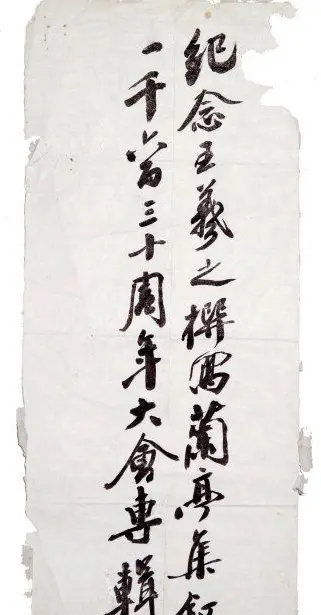 紀念王羲之撰寫蘭亭集
一千六百三十周年大會專輯